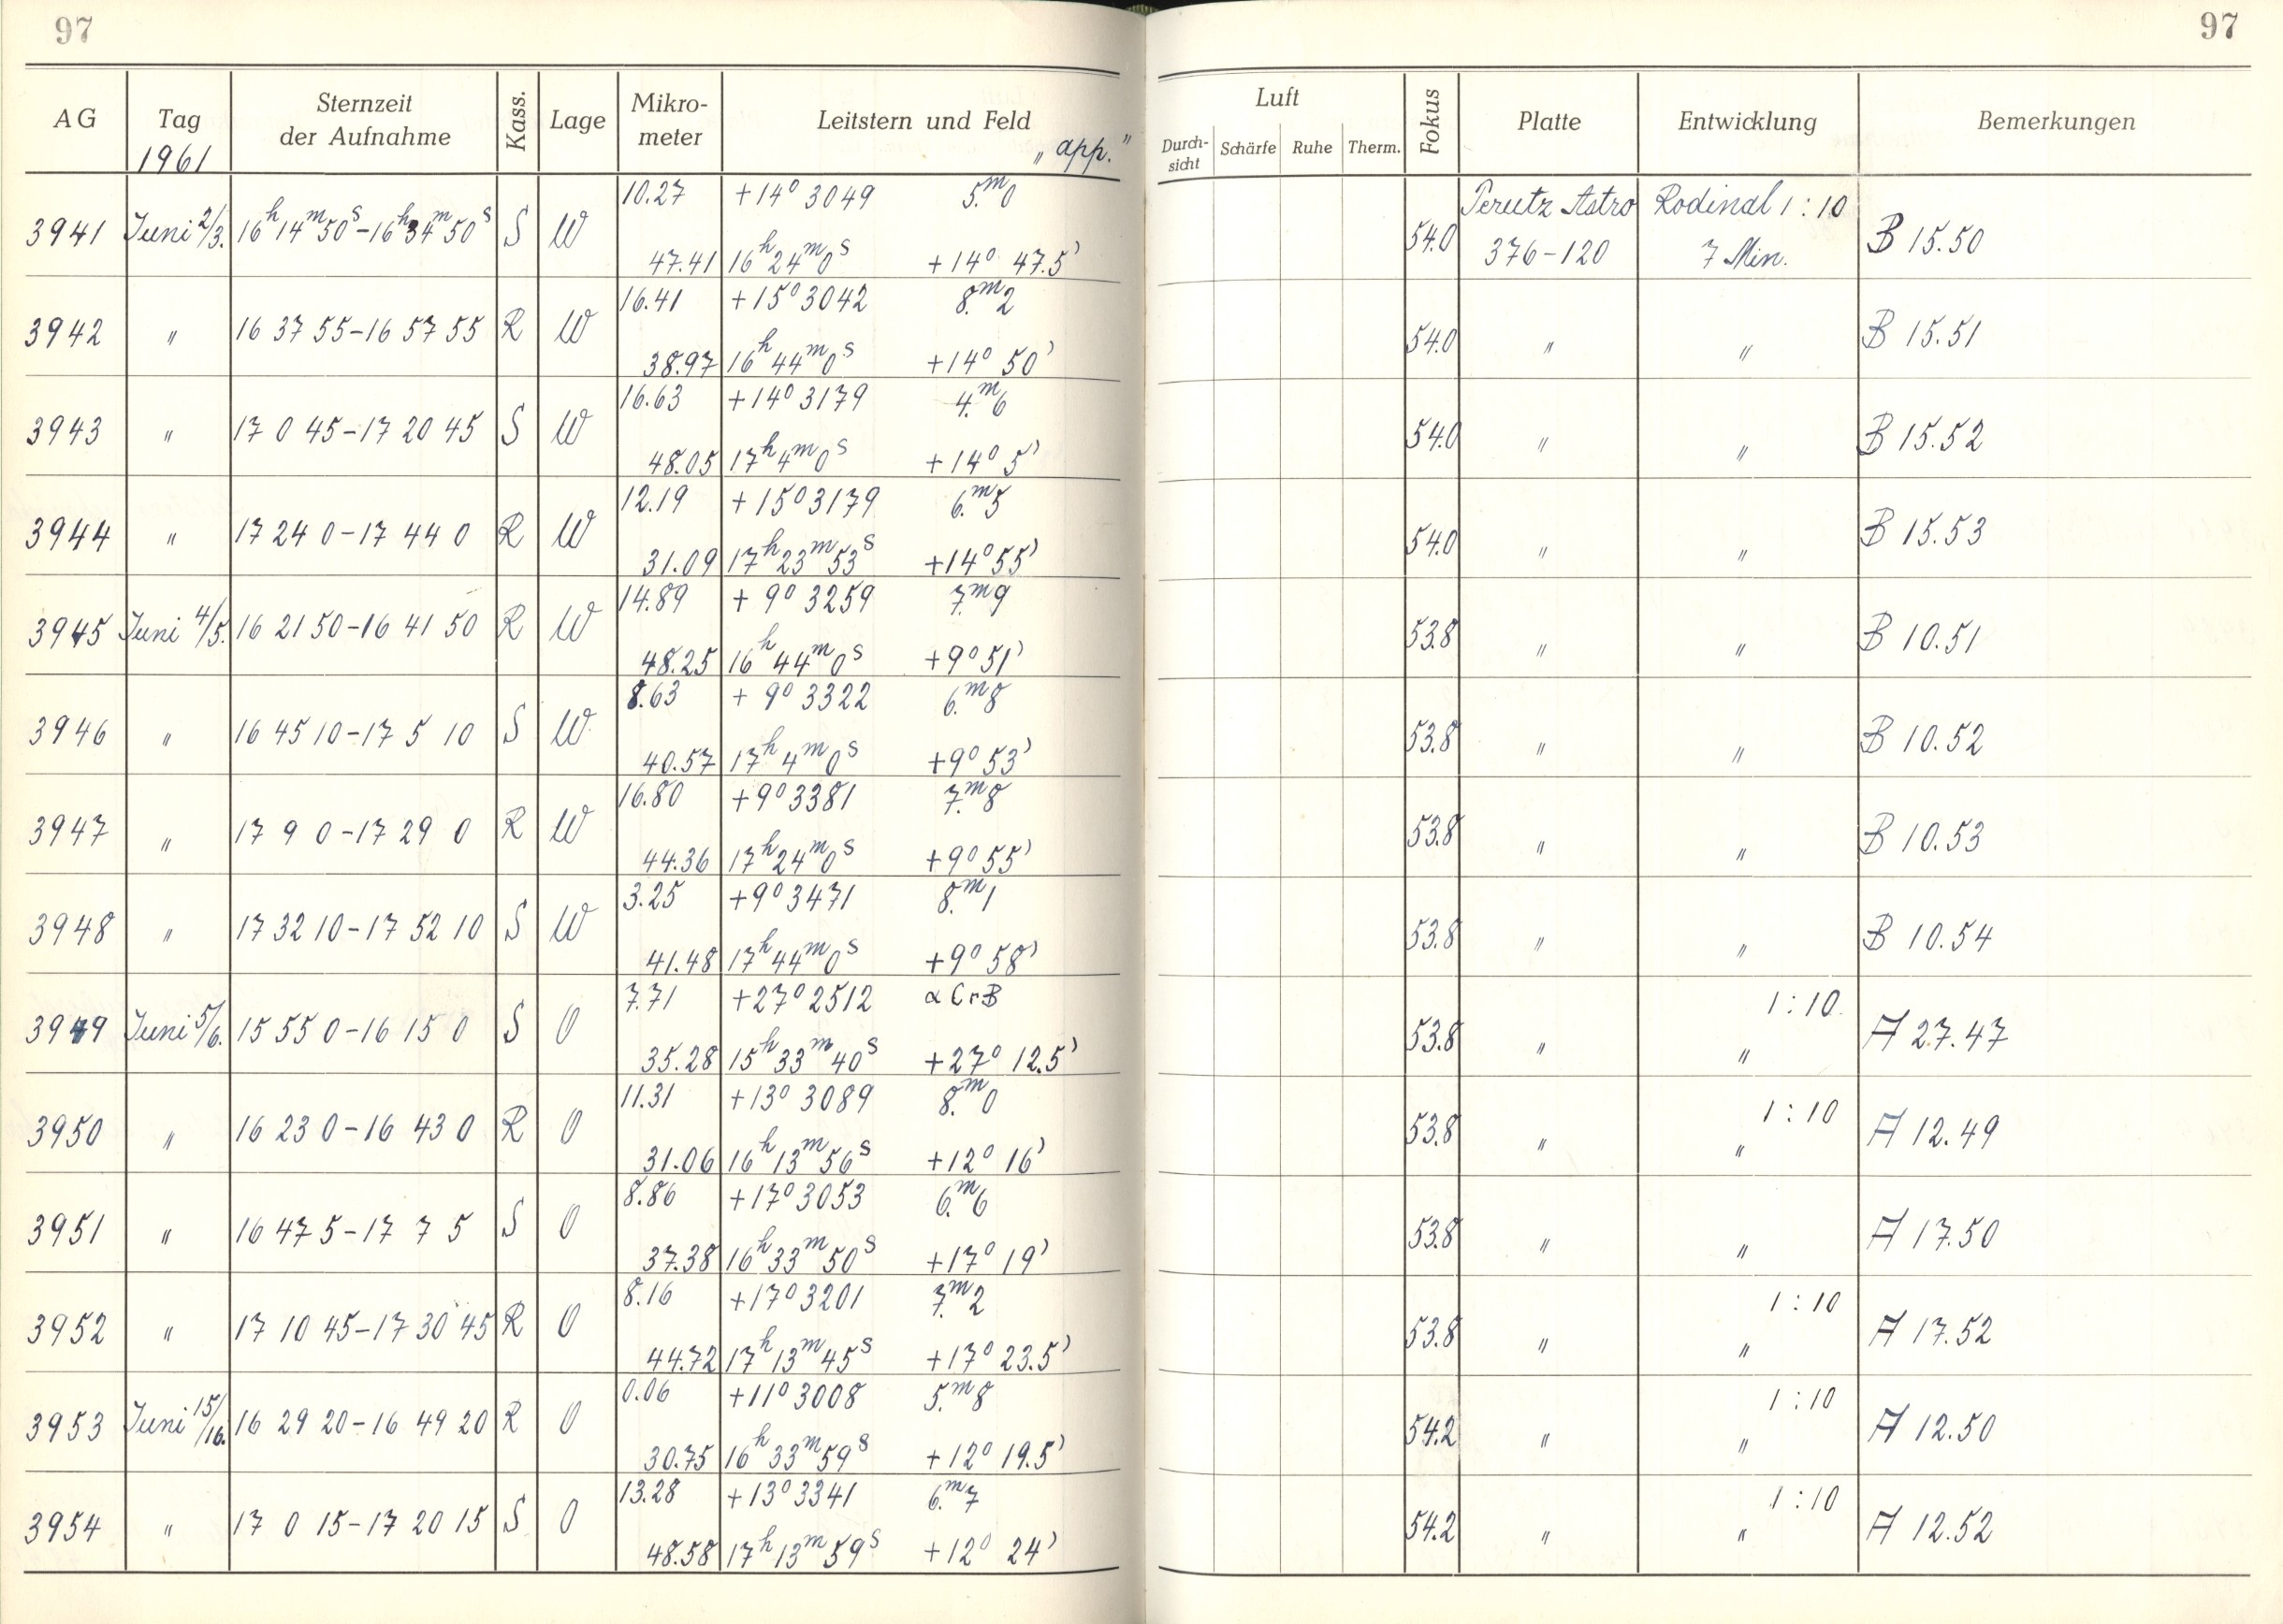 97
97
AG Tag Sternzeit der Aufnahme Kass. Lage Mikro-meter Leitstern und Feld Luft Durch-sicht Schärfe Ruhe Therm. Fokus Platte Entwicklung Bemerkungen
1961 „app."
10.27 +14° 3049 5.m0 Perutz Astro Rodinal 1:10
3941 Juni 2/3. 16h14m50s-16h34m50s S W 54.0 376-120 7 Min. B 15.50
47.41 16h24m0s +14° 47.5'
16.41 +15° 3042 8.m2
3942 " 16 37 55-16 57 55 R W 54.0 " " B 15.51
38.97 16h44m0s +14° 50'
16.63 +14° 3179 4.m6
3943 " 17 0 45-17 20 45 S W 54.0 " " B 15.52
48.05 17h4m0s +14° 5'
12.19 +15° 3179 6.m5
3944 " 17 24 0-17 44 0 R W 54.0 " " B 15.53
31.09 17h23m53s +14° 55'
14.89 +9° 3259 7.m9
3945 Juni 4/5. 16 21 50-16 41 50 R W 53.8 " " B 10.51
48.25 16h44m0s +9° 51'
8.63 +9° 3322 6.m8
3946 " 16 45 10-17 5 10 S W 53.8 " " B 10.52
40.57 17h4m0s +9° 53'
16.80 +9° 3381 7.m8
3947 " 17 9 0-17 29 0 R W 53.8 " " B 10.53
44.36 17h24m0s +9° 55'
3.25 +9° 3471 8.m1
3948 " 17 32 10-17 52 10 S W 53.8 " " B 10.54
41.48 17h44m0s +9° 58'
7.71 +27° 2512 α CrB 1:10
3949 Juni 5/6. 15 55 0-16 15 0 S O 53.8 " " A 27.47
35.28 15h33m40s +27° 12.5'
11.31 +13° 3089 8.m0 1:10
3950 " 16 23 0-16 43 0 R O 53.8 " " A 12.49
31.06 16h13m56s +12° 16'
8.86 +17° 3053 6.m6
3951 " 16 47 5-17 7 5 S O 53.8 " " A 17.50
37.38 16h33m50s +17° 19'
8.16 +17° 3201 7.m2 1:10
3952 " 17 10 45-17 30 45 R O 53.8 " " A 17.52
44.72 17h13m45s +17° 23.5'
0.06 +11° 3008 5.m8 1:10
3953 Juni 15/16. 16 29 20-16 49 20 R O 54.2 " " A 12.50
30.75 16h33m59s +12° 19.5'
13.28 +13° 3341 6.m7 1:10
3954 " 17 0 15-17 20 15 S O 54.2 " " A 12.52
48.58 17h13m59s +12° 24'